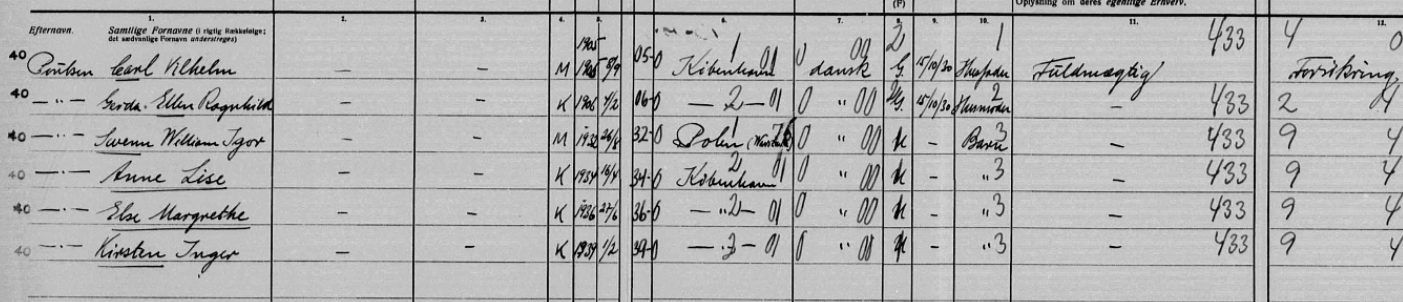 (F) Oplysning om deres egentlige Erhverv.
1. 2. 3. 4. 5. 6. 7. 8. 9. 10. 11. 12.
Efternavn. Samtlige Fornavne (i rigtig Rækkefølge;
det sædvanlige Fornavn understreges)
1905 1 2 1 433 4 0
40 Poulsen Carl Vilhelm — — M 1905 5/9 05-0 København 01 0 dansk 00 G. 15/10/30 Husfader Fuldmægtig Forsikring.
40 —"— Gerda Ellen Ragnhild — — K 1906 06-0 — 2 — 01 0 " 00 G. 15/10/30 Husmoder 2 — 433 2 4
40 —"— Svenn William Igor — — M 1932 26/8 32-0 Polen 0 " 00 U — Barn 3 — 433 9 4
40 —"— Anne Lise — — K 1934 34-0 København 2 01 0 " 00 U — " 3 — 433 9 4
40 —"— Else Margrethe — — K 1936 27/6 36-0 —"2— 01 0 " 00 U — " 3 — 433 9 4
40 —"— Kirsten Inger — — K 1939 1/2 39-0 — 01 0 " 00 U — " 3 — 433 9 4